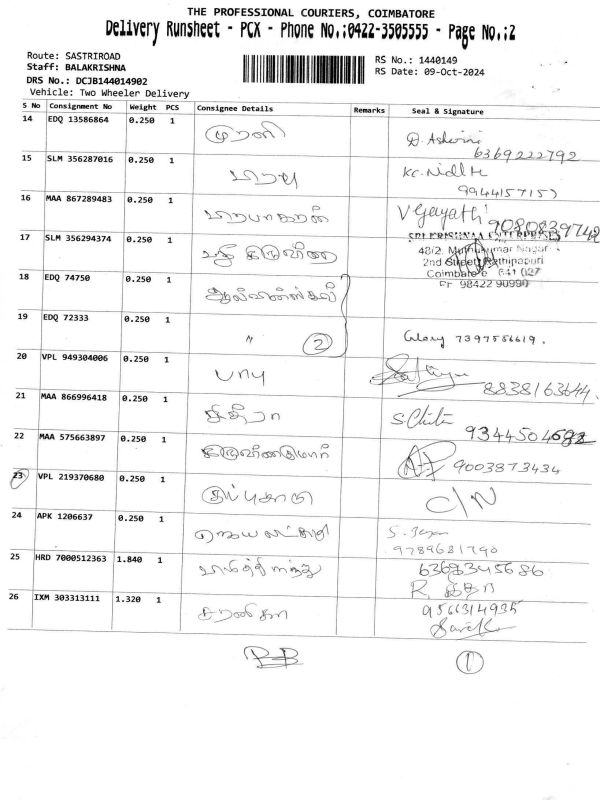 THE PROFESSIONAL COURIERS, COIMBATORE
Delivery Runsheet - PCX - Phone No.:0422-3505555 - Page No.:2
Route: SASTRIROAD
Staff: BALAKRISHNA
DRS No.: DCJB144014902
Vehicle: Two Wheeler Delivery
RS No.: 1440149
RS Date: 09-Oct-2024
S No Consignment No Weight PCS Consignee Details Remarks Seal & Signature
14 EDQ 13586864 0.250 1 முரளி D. Ashwini
6369222792
15 SLM 356287016 0.250 1 KC. Nidhi
9944157157
16 MAA 867289483 0.250 1 V Gayathi 9080839742
17 SLM 356294374 0.250 1 SRI KRISHNAA ENTERPRISES
48/2, Muthukumar Nagar
2nd Street, Rathinapuri
Coimbatore 641 027
98422 90990
18 EDQ 74750 0.250 1
19 EDQ 72333 0.250 1 " 2 Glory 7397586619.
20 VPL 949304006 0.250 1 பாபு
8838163644
21 MAA 866996418 0.250 1 சித்ரா S. Chitra
9344504682
22 MAA 575663897 0.250 1 9003873434
23 VPL 219370680 0.250 1 C/N
24 APK 1206637 0.250 1 ஜெயலட்சுமி S. Jaya
9789681790
25 HRD 7000512363 1.840 1 6368345686
R.
26 IXM 303313111 1.320 1 சரணிகா 9566314935
1